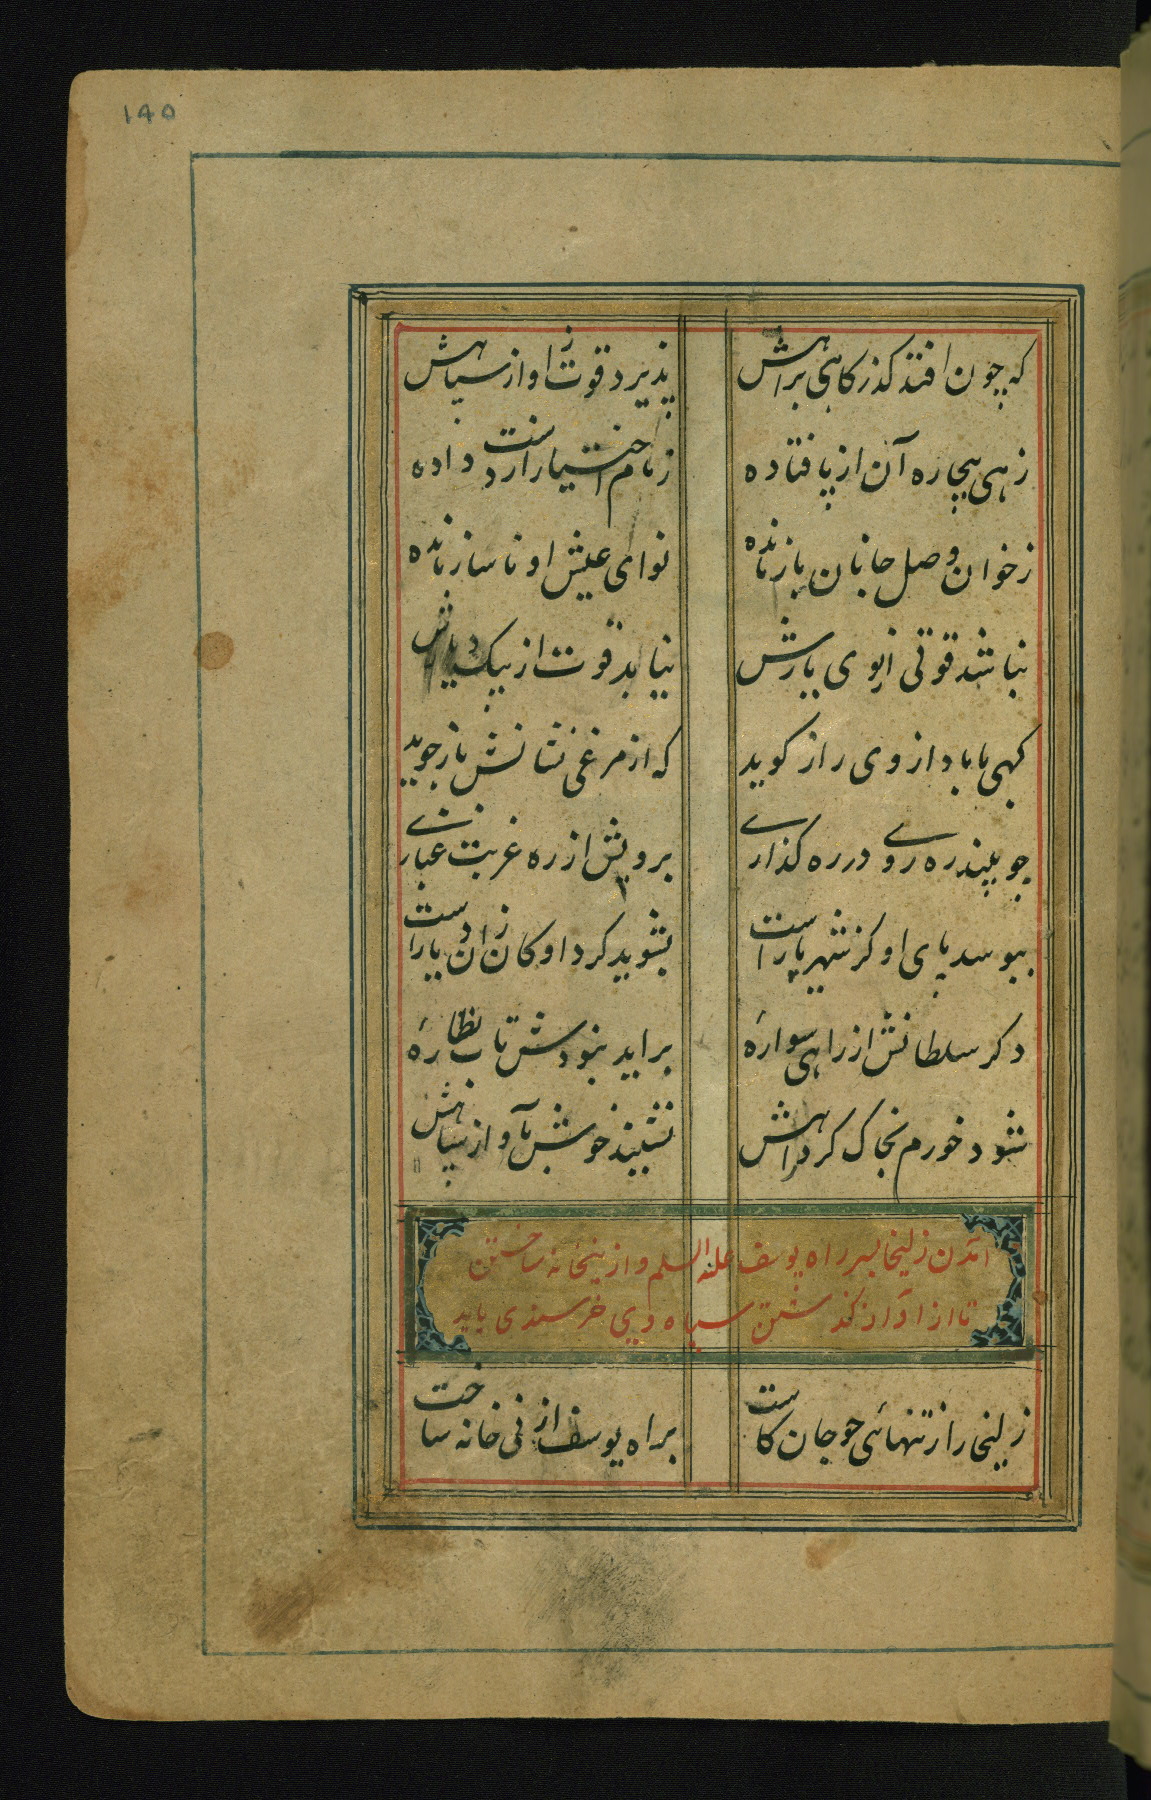 ۱۴۵
که چون افتد کذر کاهی براهش پذیرد قوت از اواز سپاهش
زهی بیچاره آن از پا فتاده زمام اختیار از دست داده
ز خوان وصل جانان بازمانده نوای عیش او ناساز مانده
نباشد قوتی از بوی یارش نیابد قوت از پیک دیارش
کهی با باد از وی راز کوید که از مرغی نشانش باز جوید
چو بیند ره روی در ره کذاری برویش از ره غربت غباری
ببوسد پای او کز شهر یار است بشوید کرد او کان زان دیار است
دکر سلطانش از راهی سواره براید نبودش تاب نظاره
شود خورم بخاک کرد راهش نشیند خوش بآواز سپاهش
آمدن زلیخا بسر راه یوسف علیه السلم و از نی خانه ساختن
تا از آواز کذشتن سپاه وی خرسندی یابد
زلیخا را ز تنهائی چو جان کاست براه یوسف از نی خانه ساخت